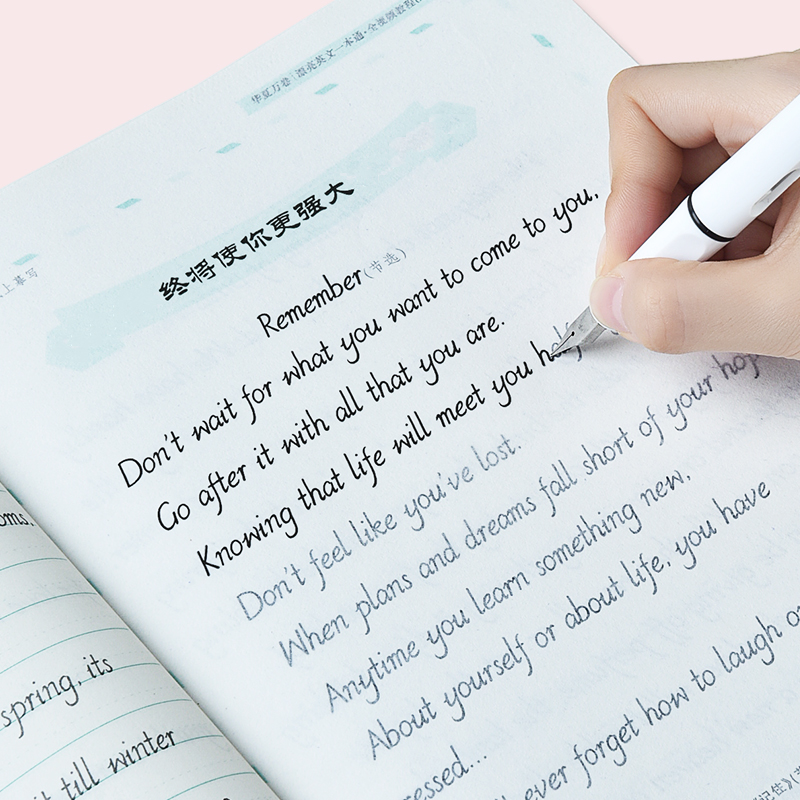 华夏万卷 | 漂亮英文一本通·全视频教程
终将使你更强大
Remember(节选)
Don't wait for what you want to come to you,
Go after it with all that you are.
Knowing that life will meet you
Don't feel like you've lost.
When plans and dreams fall short of your
Anytime you learn something new,
About yourself or about life, you have
ever forget how to laugh
上摹写
spring, its
till winter